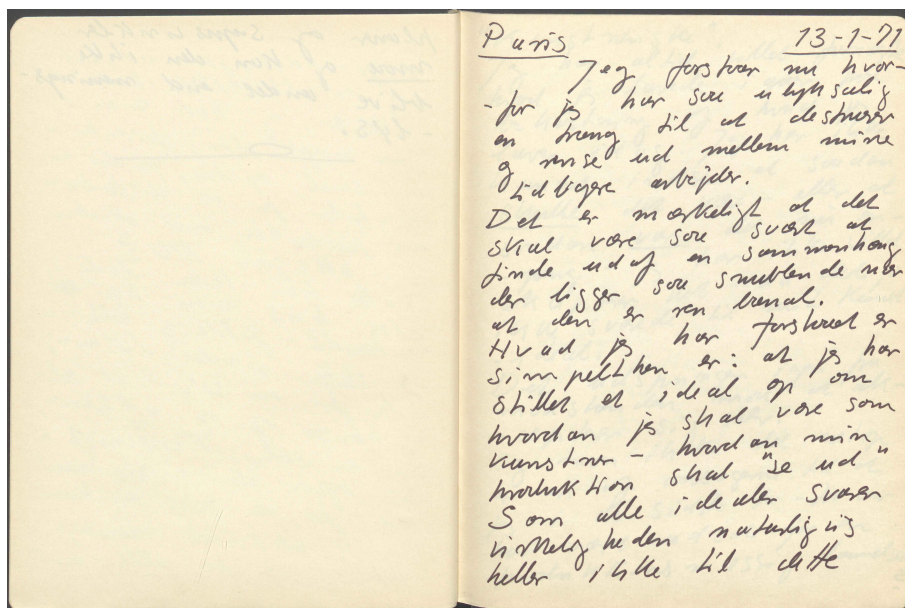 Paris 13-1-71
Jeg forstår nu hvor-
-for jeg har så ulyksalig
en trang til at destruere
og rense ud mellem mine
tidligere arbejder.
Det er mærkeligt at det
skal være så svært at
finde ud af en sammenhæng
der ligger så snublende nær
at den er ren banal.
Hvad jeg har forstået er
simpelthen er: at jeg har
stillet et ideal op om
hvordan jeg skal være som
kunstner - hvordan min
produktion skal "se ud"
Som alle idealer svarer
virkeligheden naturligvis
heller ikke til dette